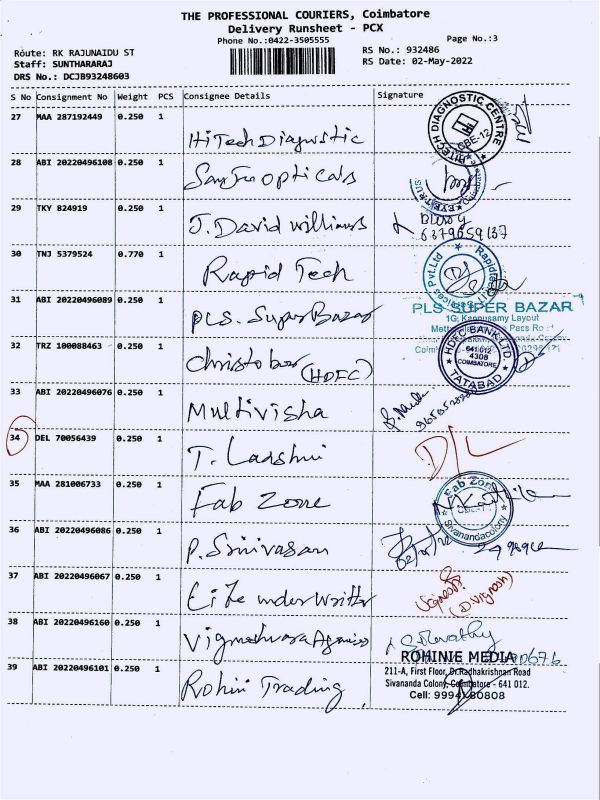 THE PROFESSIONAL COURIERS, Coimbatore
Delivery Runsheet - PCX
Phone No.:0422-3505555
Page No.:3
Route: RK RAJUNAIDU ST
RS No.: 932486
Staff: SUNTHARARAJ
RS Date: 02-May-2022
DRS No.: DCJB93248603
S No Consignment No Weight PCS Consignee Details Signature
27 MAA 287192449 0.250 1
HiTech Diagnostic
HITECH DIAGNOSTIC CENTRE
CBE-12
28 ABI 20220496108 0.250 1
opticals
29 TKY 824919 0.250 1
J. David williams
6379659137
30 TNJ 5379524 0.770 1
Rapid Tech
Pvt.Ltd
31 ABI 20220496089 0.250 1
PLS. Super Bazar
PLS SUPER BAZAR
1G, Kannusamy Layout
32 TRZ 100088463 0.250 1
Christober
(HDFC)
HDFC BANK LTD.
641 012
4308
COIMBATORE
TATABAD
33 ABI 20220496076 0.250 1
Multivisha
34 DEL 70056439 0.250 1
T. Lakshmi
D/L
35 MAA 281006733 0.250 1
Fab Zone
Fab Zone
Sivanandacolony
36 ABI 20220496086 0.250 1
P. Srinivasan
37 ABI 20220496067 0.250 1
Life under Writter
(D. Vignesh)
38 ABI 20220496160 0.250 1
Vigneshwara Agencies
39 ABI 20220496101 0.250 1
Rohini Trading
ROHINIE MEDIA
211-A, First Floor, Dr.Radhakrishnan Road
Sivananda Colony, Coimbatore - 641 012.